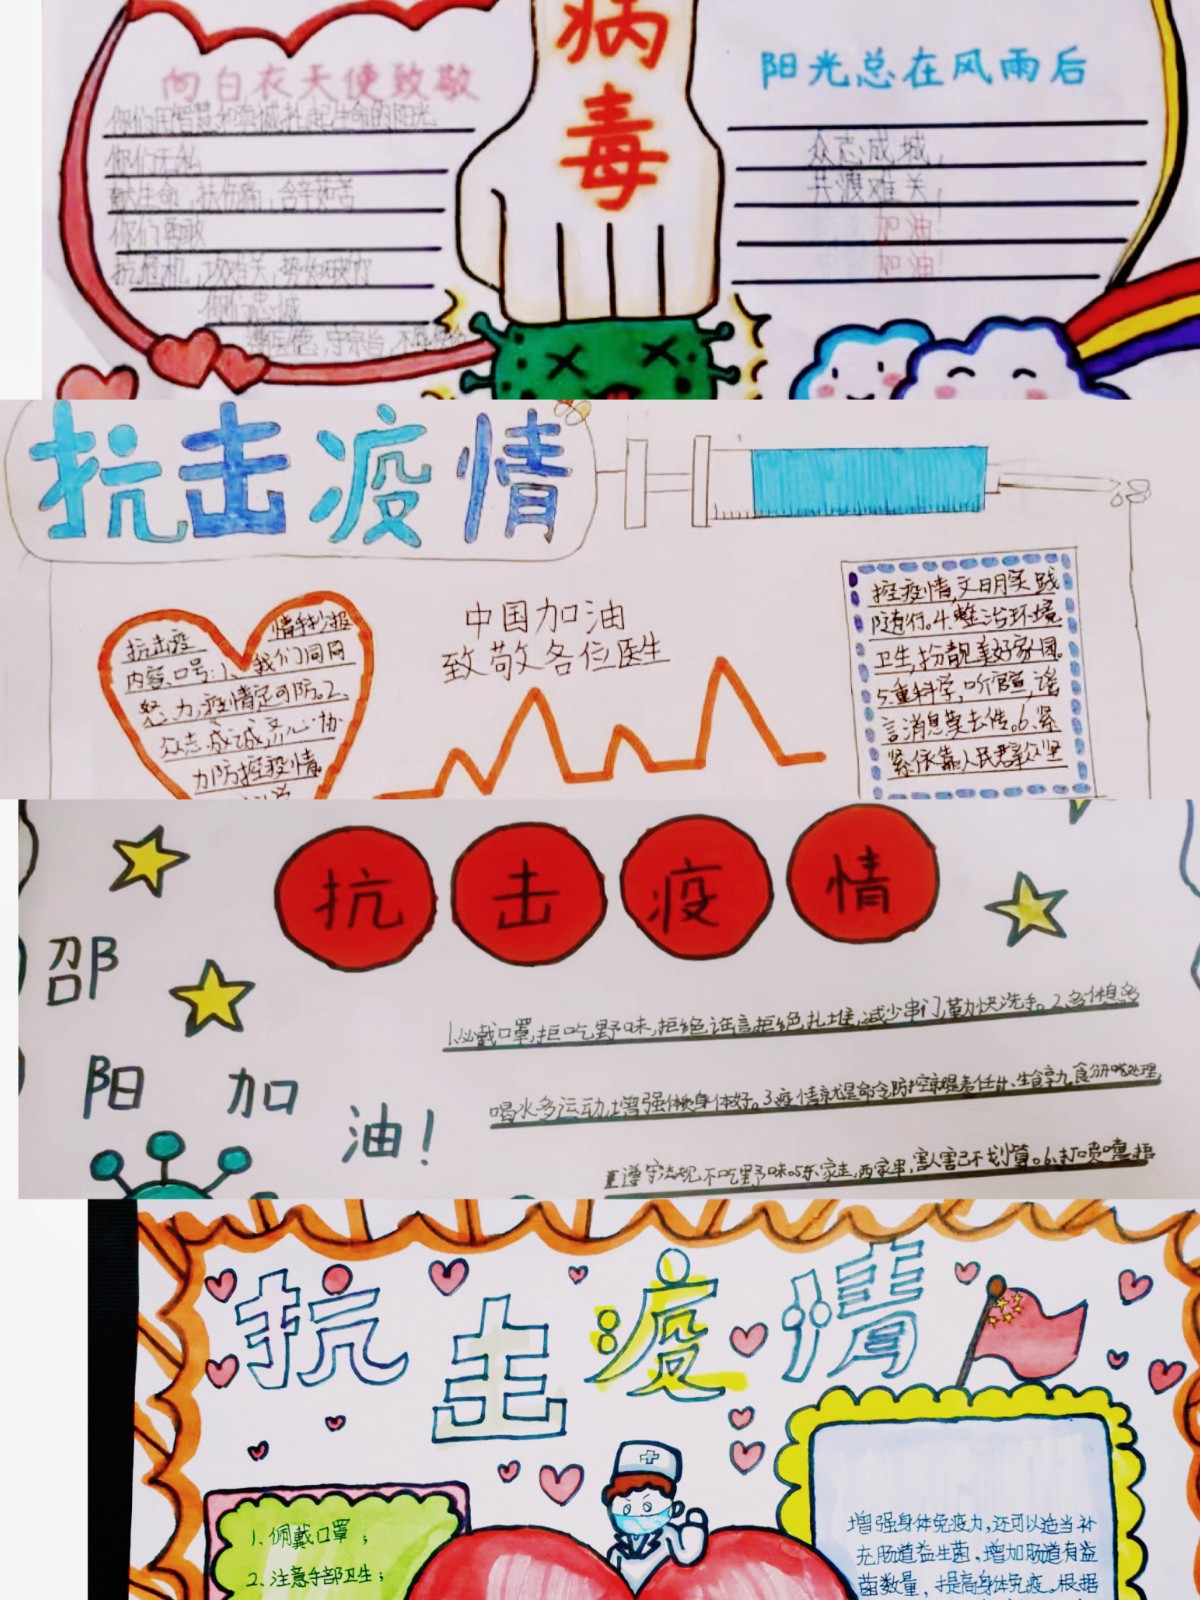 病
毒
向白衣天使致敬
你们用智慧和真诚扎起生命的阳光
你们无私
献生命,扶伤痛,含辛茹苦
你们勇敢
你们忠诚
阳光总在风雨后
众志成城,
共渡难关,
加油!
加油!
抗击疫情
抗击疫情手抄报
内容、口号:1、我们同网
努力,疫情定可防。2、
众志成诚,齐心协
力防控疫情
中国加油
致敬各位医生
控疫情,文明实践
随行。4.整治环境
卫生,扮靓美好家园。
5.重科学,听官宣,谣
言消息莫去传。6.紧
紧依靠人民群众坚
抗击疫情
邵
阳加
油!
1.必戴口罩,拒吃野味,拒绝谣言拒绝扎堆,减少串门,勤快洗手。2.多休息多
喝水多运动,增强体质身体好。3.疫情就是命令防控就是责任4、生食熟食分开处理
遵守法规,不吃野味。5东家走,西家串,害人害己不划算。6、打喷嚏捂
抗击疫情
1、佩戴口罩;
2、注意手部卫生;
增强身体免疫力,还可以适当补
充肠道益生菌,增加肠道有益
菌数量,提高身体免疫。根据